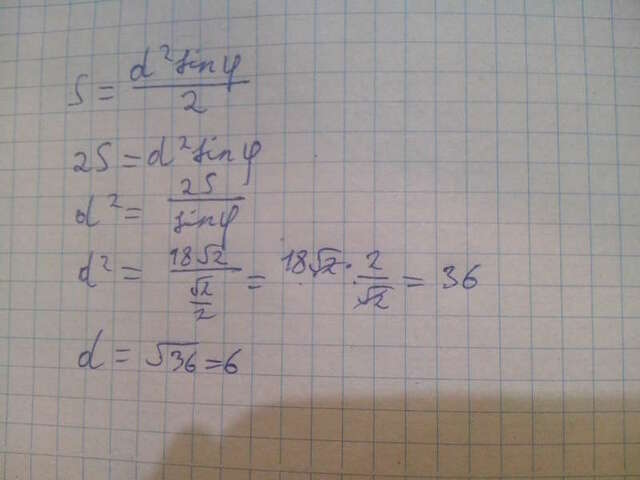 S = d² sin φ / 2
2S = d² sin φ
d² = 2S / sin φ
d² = 18√2 / (√2/2) = 18√2 · 2/√2 = 36
d = √36 = 6